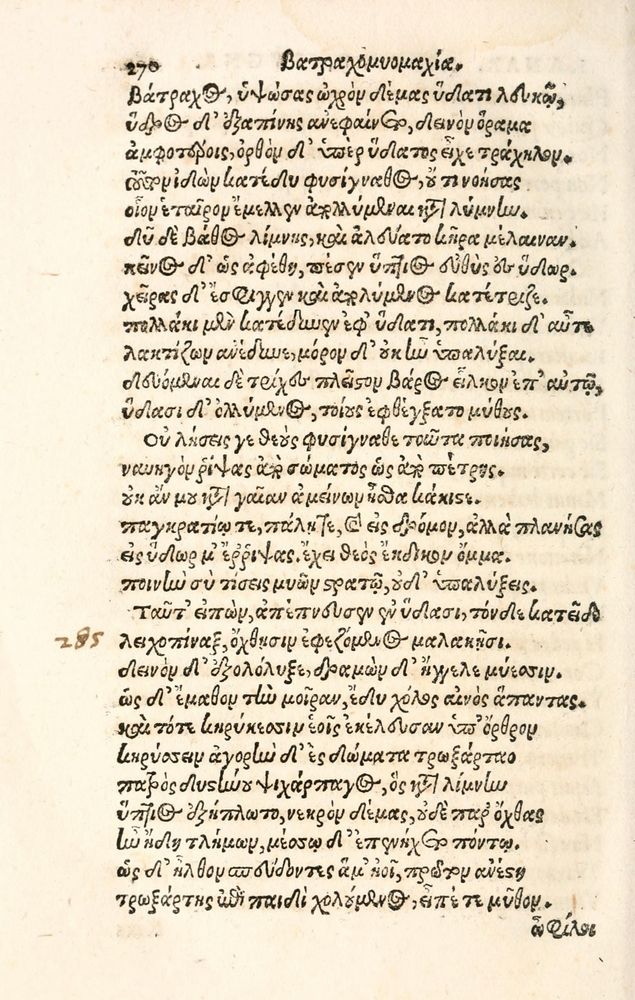 270 Βατραχομυομαχία.
Βάτραχος, ὑψώσας ὠχρὸν δέμας ὕδατι λευκῷ,
ὕδρος δ' ἐξαπίνης ἀνεφαίνετο, δεινὸν ὅραμα
ἀμφοτέροις, ὀρθὸν δ' ὑπὲρ ὕδατος εἶχε τράχηλον.
τοῦτον ἰδὼν κατέδυ φυσίγναθος, οὔ τι νοήσας
οἷον ἑταῖρον ἔμελλεν ἀπολλύμεναι κατὰ λύμνην.
δῦ δὲ βάθος λίμνης, καὶ ἀλεύατο κῆρα μέλαιναν.
κεῖνος δ' ὡς ἀφέθη, πέσεν ὕπτιος εὐθὺς ἐν ὕδωρ.
χεῖρας δ' ἔσφιγγεν καὶ ἀπολύμενος κατέτριζε.
πολλάκι μὲν κατέδυνεν ἐφ' ὕδατι, πολλάκι δ' αὖτε
λακτίζων ἀνέδυνε, μόρον δ' οὐκ ἦν ὑπαλύξαι.
δευόμεναι δὲ τρίχες πλεῖστον βάρος εἷλκον ἐπ' αὐτῷ,
ὕδασι δ' ὀλλύμενος, τοίους ἐφθέγξατο μύθους.
Οὐ λήσεις γε θεοὺς φυσίγναθε ταῦτα ποιήσας,
ναυηγὸν ῥίψας ἀπὸ σώματος ὡς ἀπὸ πέτρης.
οὐκ ἄν μου κατὰ γαῖαν ἀμείνων ἦσθα κάκιστε.
παγκρατίῳ τε, πάλῃ τε, καὶ εἰς δρόμον, ἀλλὰ πλανήσας
εἰς ὕδωρ μ' ἔρριψας. ἔχει θεὸς ἔκδικον ὄμμα.
ποινὴν σὺ τίσεις μυῶν στρατῷ, οὐδ' ὑπαλύξεις.
Ταῦτ' εἰπὼν, ἀπέπνευσεν ἐν ὕδασι, τόνδε κατεῖδε
285 λειχοπίναξ, ὄχθῃσιν ἐφεζόμενος μαλακῇσι.
δεινὸν δ' ἐξολόλυξε, δραμὼν δ' ἤγγελε μύεσσιν.
ὡς δ' ἔμαθον τὴν μοῖραν, ἔδυ χόλος αἰνὸς ἅπαντας.
καὶ τότε κηρύκεσσιν ἑοῖς ἐκέλευσαν ὑπ' ὄρθρον
κηρύσσειν ἀγορὴν δ' ἐς δώματα τρωξάρταο
πατρὸς δυστήνου ψιχάρπαγος, ὃς κατὰ λίμνην
ὕπτιος ἐξήπλωτο, νεκρὸν δέμας, οὐδὲ παρ' ὄχθας
ἦν ἤδη τλήμων, μέσσῳ δ' ἐπενήχετο πόντῳ.
ὡς δ' ἦλθον σπεύδοντες ἅμ' ἠοῖ, πρῶτον ἀνέστη
τρωξάρτης ἐπὶ παιδὶ χολούμενος, εἶπέ τε μῦθον.
ὦ φίλοι